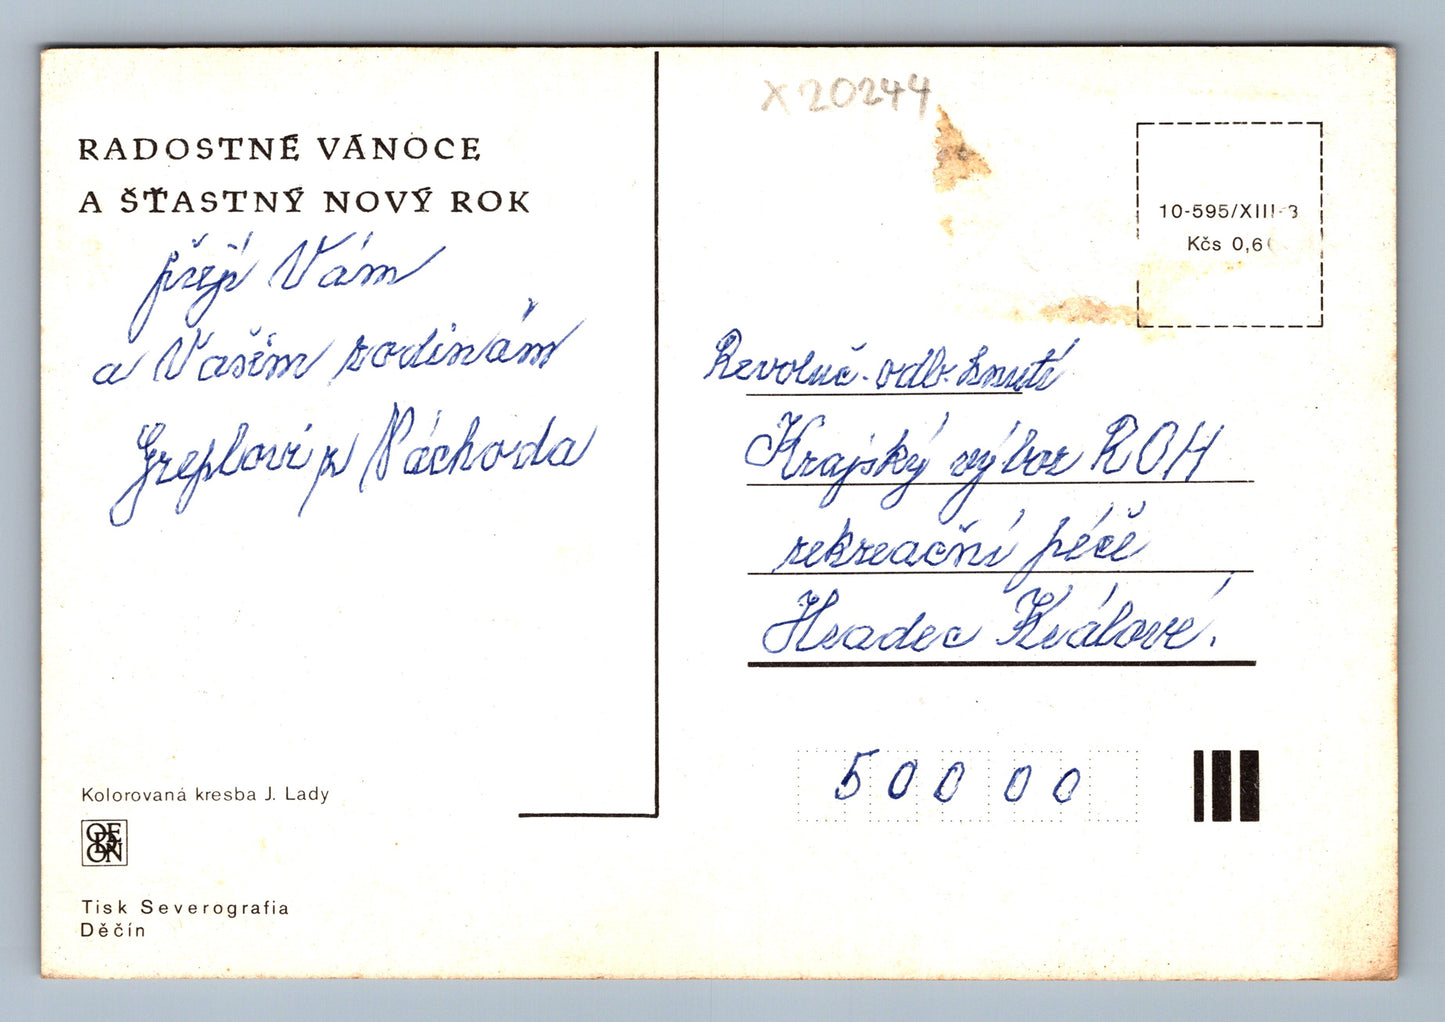 RADOSTNÉ VÁNOCE
A ŠŤASTNÝ NOVÝ ROK
přejí Vám
a Vašim rodinám
Greplovi z Náchoda
Kolorovaná kresba J. Lady
ODEON
Tisk Severografia
Děčín
X20244
10-595/XIII-3
Kčs 0,6
Revoluč. odb. hnutí
Krajský výbor ROH
rekreační péče
Hradec Králové.
50000